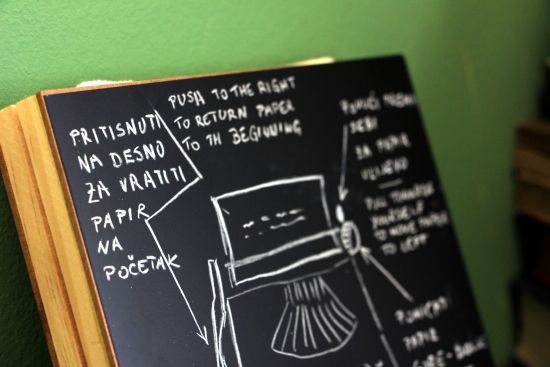 PRITISNUTI
NA DESNO
ZA VRATITI
PAPIR
NA
POČETAK
PUSH TO THE RIGHT
TO RETURN PAPER
TO TH BEGINNING
SEBI
ZA PAPIR
PULL TOWARDS
YOURSELF
TO MOVE PAPER
TO LEFT
PAPIR